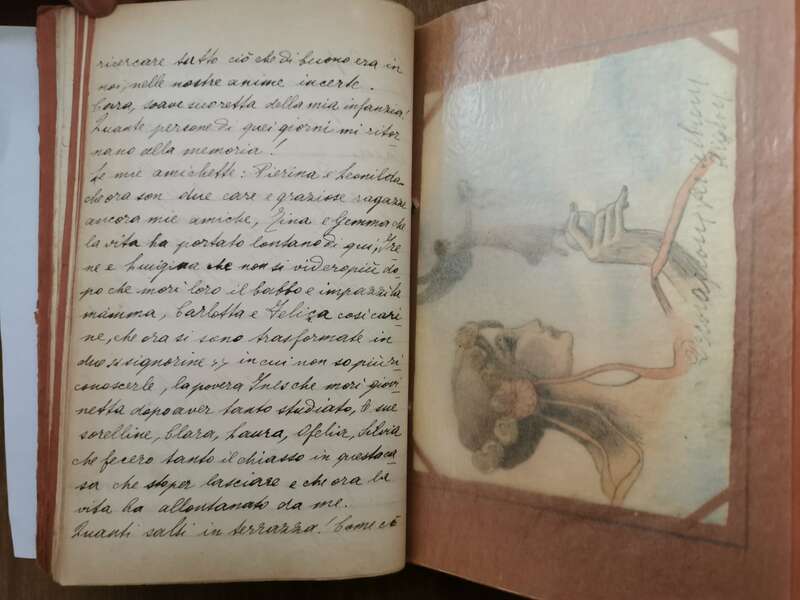 ricercare tutto ciò che di buono era in
noi, nelle nostre anime incerte.
Cara, soave suoretta della mia infanzia!
Quante persone di quei giorni mi ritor-
nano alla memoria!
Le mie amichette: Pierina e Leonilda
che ora son due care e graziose ragazze
ancora mie amiche, Zina e Gemma che
la vita ha portato lontano di qui, Ire
ne e Luigina che non si videro più do-
po che morì loro il babbo e impazzì la
mamma, Carlotta e Felicza così cari-
ne, che ora si sono trasformate in
due « signorine » in cui non so più ri-
conoscerle, la povera Ines che morì giovi-
netta dopo aver tanto studiato, le sue
sorelline, Clara, Laura, Ofelia, Silvia
che fecero tanto il chiasso in questa ca
sa che sto per lasciare e che ora la
vita ha allontanato da me.
Quanti salti in terrazza! Come ciò